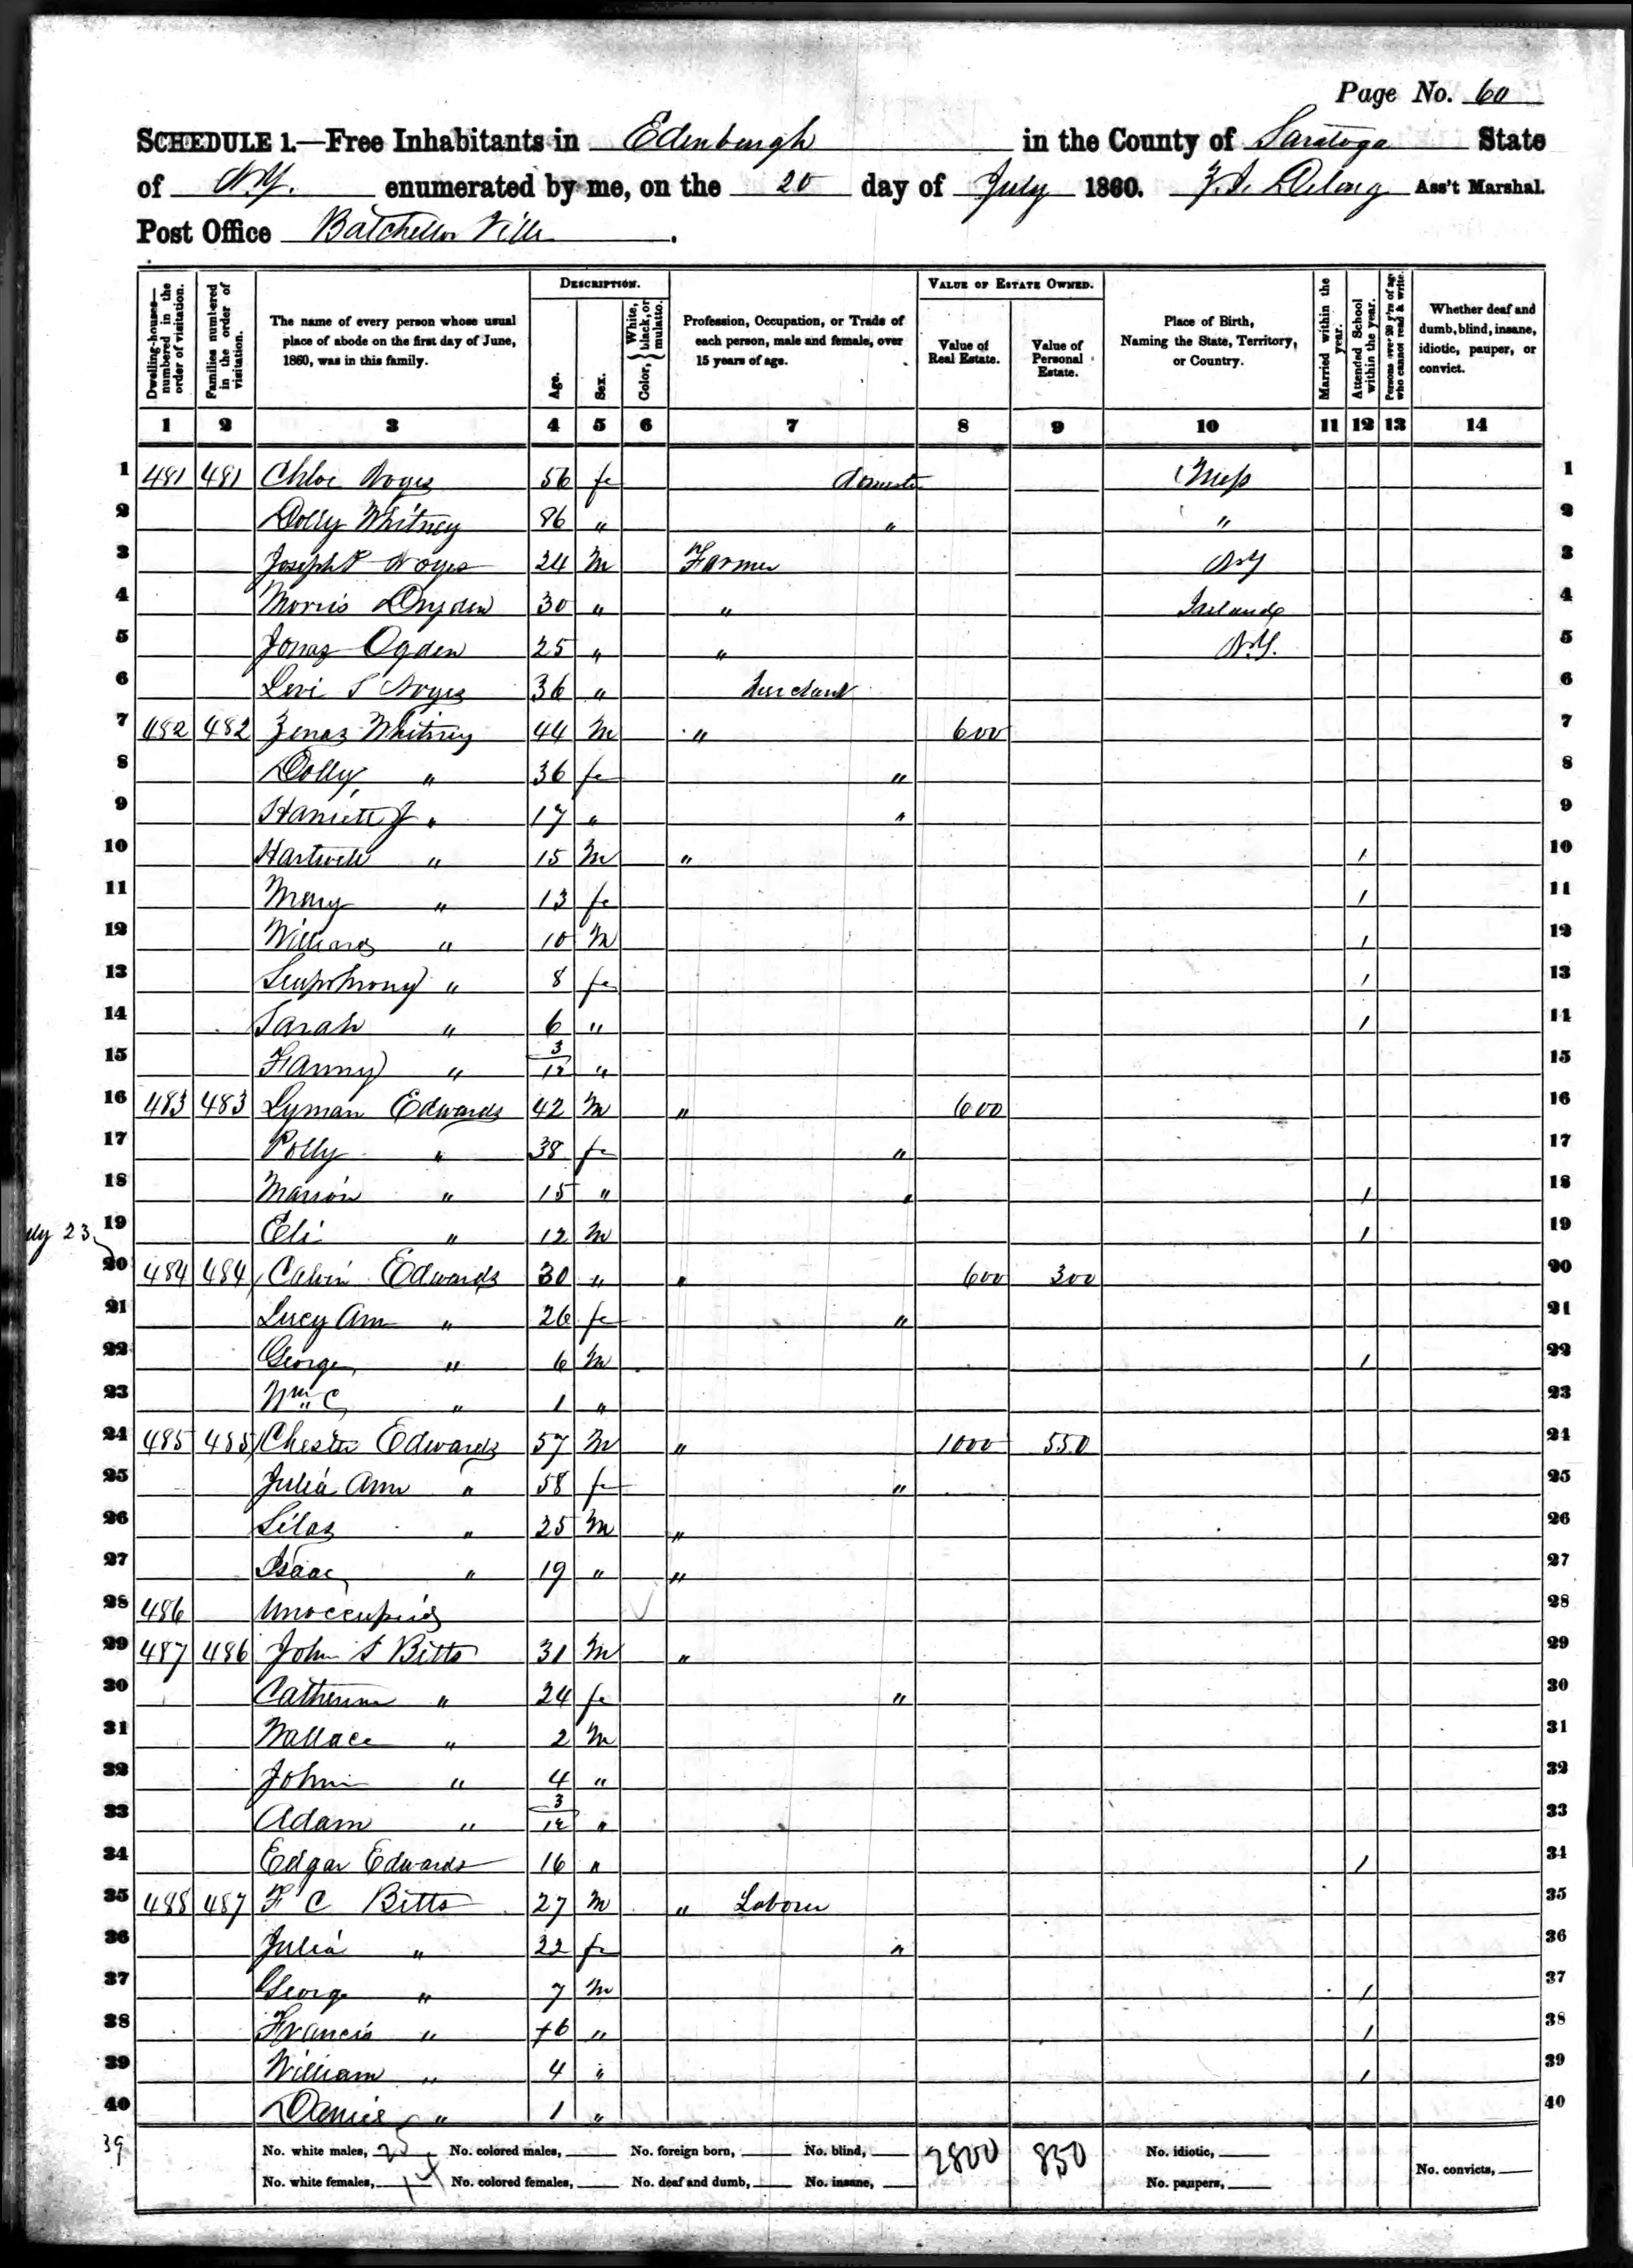 Page No. 60
SCHEDULE 1.—Free Inhabitants in Edenburgh in the County of Saratoga State
of N.Y. enumerated by me, on the 20 day of July 1860. Delong Ass't Marshal.
Post Office Batcheller Ville.
DESCRIPTION. VALUE OF ESTATE OWNED.
Dwelling-houses—numbered in the order of visitation. Families numbered in the order of visitation. The name of every person whose usual place of abode on the first day of June, 1860, was in this family. Age. Sex. Color, { White, black, or mulatto. Profession, Occupation, or Trade of each person, male and female, over 15 years of age. Value of Real Estate. Value of Personal Estate. Place of Birth, Naming the State, Territory, or Country. Married within the year. Attended School within the year. Persons over 20 y'rs of age who cannot read & write. Whether deaf and dumb, blind, insane, idiotic, pauper, or convict.
1 2 3 4 5 6 7 8 9 10 11 12 13 14
1 481 481 Chloe Noyes 56 fe domestic Mass 1
2 Dolly Whitney 86 " " " 2
3 Joseph P Noyes 24 M Farmer NY 3
4 Morris Dryden 30 " " Ireland 4
5 Jonas Ogden 25 " " N.Y. 5
6 Levi S Noyes 36 " Merchant 6
7 482 482 Zenas Whitney 44 M " 600 7
8 Dolly " 36 fe " 8
9 Harriett J " 17 " " 9
10 Hartwell " 15 M " / 10
11 Mary " 13 fe / 11
12 Willard " 10 M / 12
13 " 8 fe / 13
14 Sarah " 6 " / 14
15 Fanny " 3/12 " 15
16 483 483 Lyman Edwards 42 M " 600 16
17 Polly " 38 fe " 17
18 Marion " 15 " " / 18
19 Eli " 12 M / 19
July 23
20 484 484 Calvin Edwards 30 " " 600 300 20
21 Lucy Ann " 26 fe " 21
22 George " 6 M / 22
23 Wm C " 1 " 23
24 485 485 Chester Edwards 57 M " 1000 550 24
25 Julia Ann " 58 fe " 25
26 Silas " 25 M " 26
27 Isaac " 19 " " 27
28 486 Unoccupied 28
29 487 486 John S Bitts 31 M " 29
30 Catherine " 24 fe " 30
31 Wallace " 2 M 31
32 John " 4 " 32
33 Adam " 3/12 " 33
34 Edgar Edwards 16 " / 34
35 488 487 F C Bitts 27 M " Laborer 35
36 Julia " 22 fe " 36
37 George " 7 M / 37
38 Francis " 6 " / 38
39 William " 4 " / 39
40 Daniel " 1 " 40
39 No. white males, 25 No. colored males, No. foreign born, No. blind, 2800 850 No. idiotic,
No. white females, 14 No. colored females, No. deaf and dumb, No. insane, No. paupers, No. convicts,